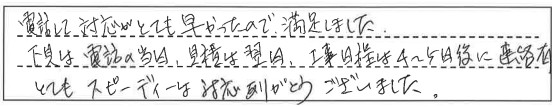 電話して対応がとても早かったので、満足しました。
下見は電話の当日、見積は翌日、工事日程は4〜5日後に連絡有
とてもスピーディーな対応ありがとうございました。